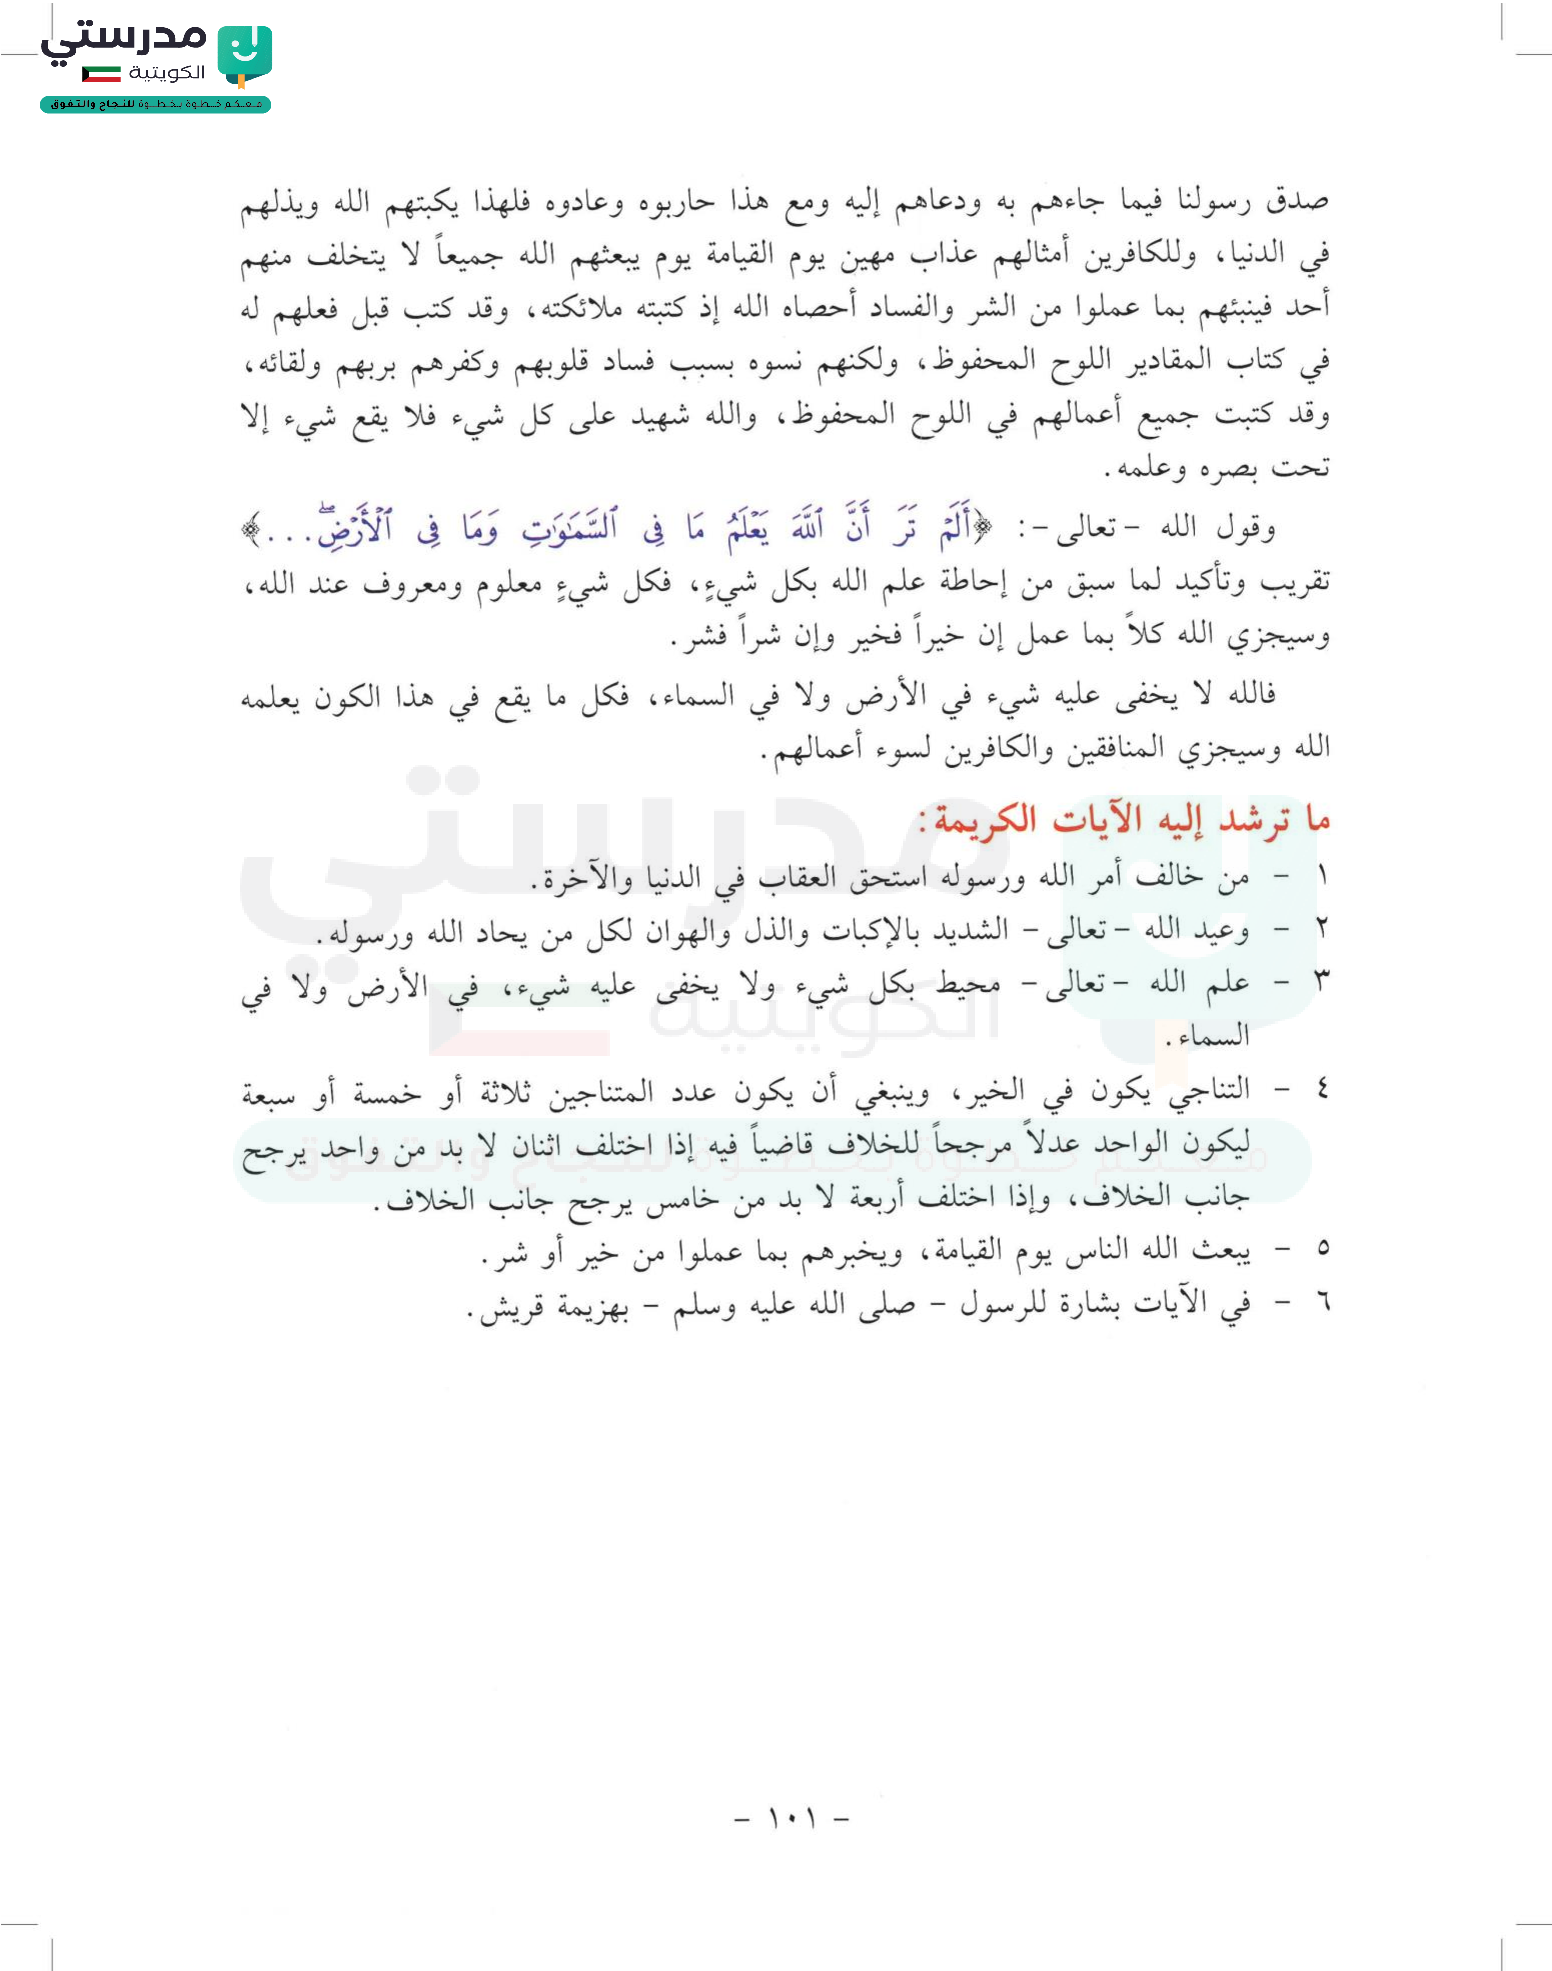 مدرستي
الكويتية
معكم خطوة بخطوة للنجاح والتفوق
صدق رسولنا فيما جاءهم به ودعاهم إليه ومع هذا حاربوه وعادوه فلهذا يكبتهم الله ويذلهم
في الدنيا، وللكافرين أمثالهم عذاب مهين يوم القيامة يوم يبعثهم الله جميعاً لا يتخلف منهم
أحد فينبئهم بما عملوا من الشر والفساد أحصاه الله إذ كتبته ملائكته، وقد كتب قبل فعلهم له
في كتاب المقادير اللوح المحفوظ، ولكنهم نسوه بسبب فساد قلوبهم وكفرهم بربهم ولقائه،
وقد كتبت جميع أعمالهم في اللوح المحفوظ، والله شهيد على كل شيء فلا يقع شيء إلا
تحت بصره وعلمه.
وقول الله -تعالى-: ﴿أَلَمْ تَرَ أَنَّ ٱللَّهَ يَعْلَمُ مَا فِى ٱلسَّمَٰوَٰتِ وَمَا فِى ٱلْأَرْضِۖ...﴾
تقريب وتأكيد لما سبق من إحاطة علم الله بكل شيءٍ، فكل شيءٍ معلوم ومعروف عند الله،
وسيجزي الله كلاً بما عمل إن خيراً فخير وإن شراً فشر.
فالله لا يخفى عليه شيء في الأرض ولا في السماء، فكل ما يقع في هذا الكون يعلمه
الله وسيجزي المنافقين والكافرين لسوء أعمالهم.
ما ترشد إليه الآيات الكريمة:
١ - من خالف أمر الله ورسوله استحق العقاب في الدنيا والآخرة.
٢ - وعيد الله -تعالى- الشديد بالإكبات والذل والهوان لكل من يحاد الله ورسوله.
٣ - علم الله -تعالى- محيط بكل شيء ولا يخفى عليه شيء، في الأرض ولا في
السماء.
٤ - التناجي يكون في الخير، وينبغي أن يكون عدد المتناجين ثلاثة أو خمسة أو سبعة
ليكون الواحد عدلاً مرجحاً للخلاف قاضياً فيه إذا اختلف اثنان لا بد من واحد يرجح
جانب الخلاف، وإذا اختلف أربعة لا بد من خامس يرجح جانب الخلاف.
٥ - يبعث الله الناس يوم القيامة، ويخبرهم بما عملوا من خير أو شر.
٦ - في الآيات بشارة للرسول - صلى الله عليه وسلم - بهزيمة قريش.
- ١٠١ -